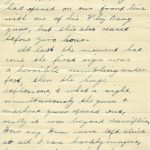 had opened on our front line
with one of his Whiz bang
guns, but this also ceased
before zero hour.
At last the moment had
come the first sign was
a horrible rumbling under
foot then the huge
explosion, & what a sight,
simultaneously the guns &
machine guns opened out,
really it was beyond description
How any Hun were left alive
at all I can hardly imagine,